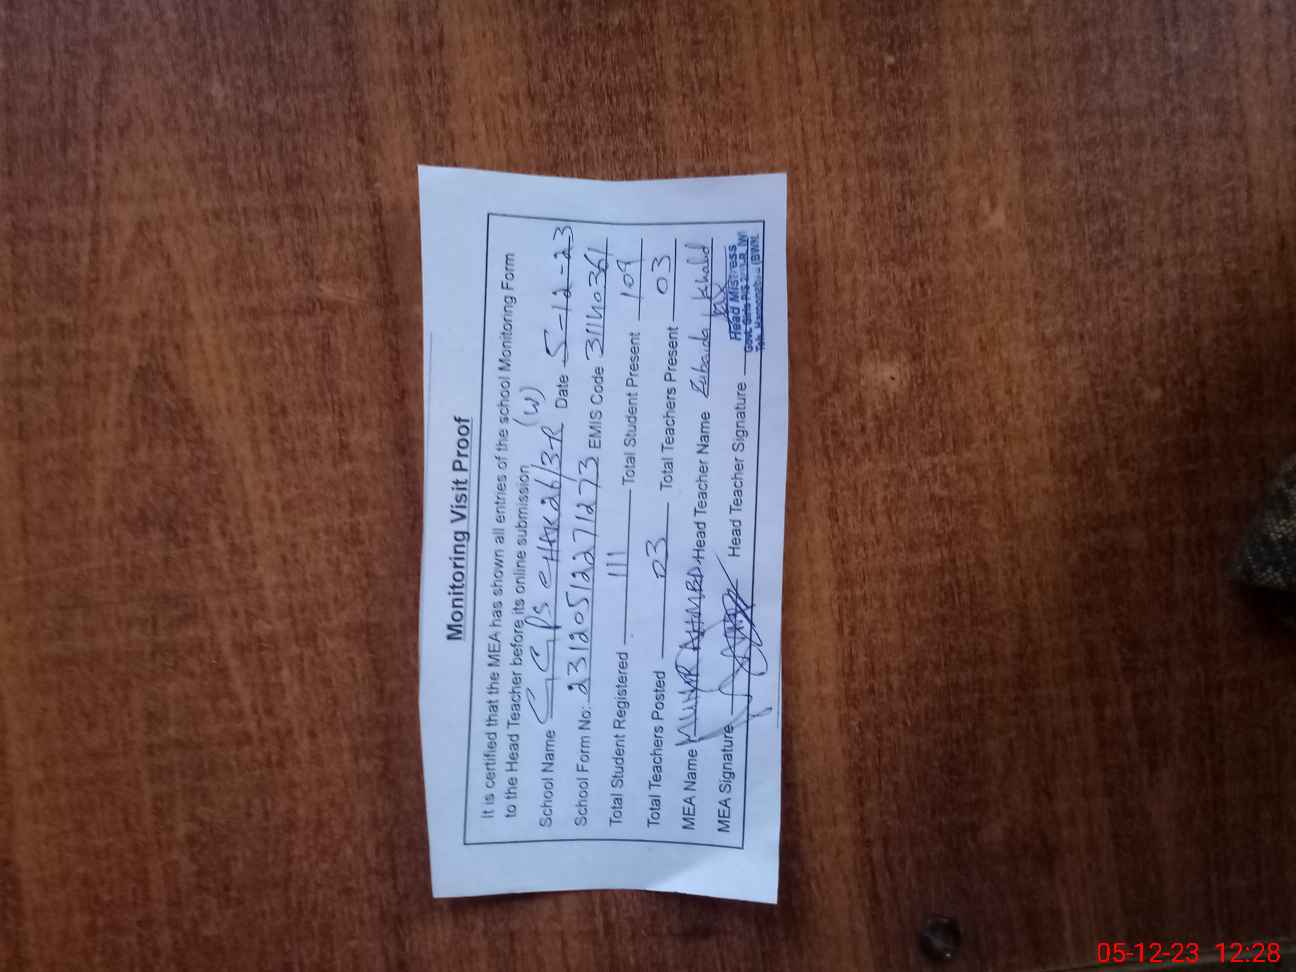 Monitoring Visit Proof
It is certified that the MEA has shown all entries of the school Monitoring Form
to the Head Teacher before its online submission
School Name GGPS CHAK 26/3-R (W) Date 5-12-23
School Form No: 23120512271273 EMIS Code 31140361
Total Student Registered 111 Total Student Present 109
Total Teachers Posted 03 Total Teachers Present 03
MEA Name AHMED Head Teacher Name Zubaida Khalid
MEA Signature Head Teacher Signature
Head Mistress
Govt. Girls P/S
Teh.
05-12-23 12:28